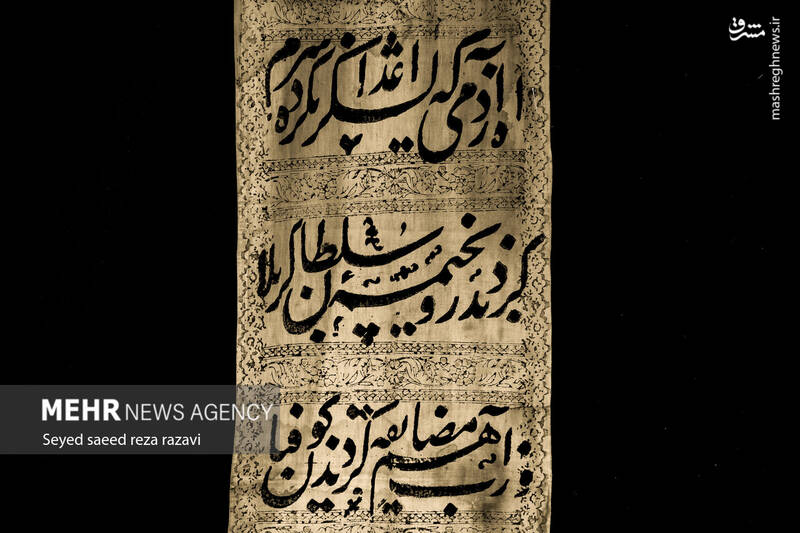 مشرق
mashreghnews.ir
آه از دمی که لشکر اعدا نکرده شرم
کردند رو به خیمه سلطان کربلا
از آب هم مضایقه کردند کوفیان
MEHR NEWS AGENCY
Seyed saeed reza razavi